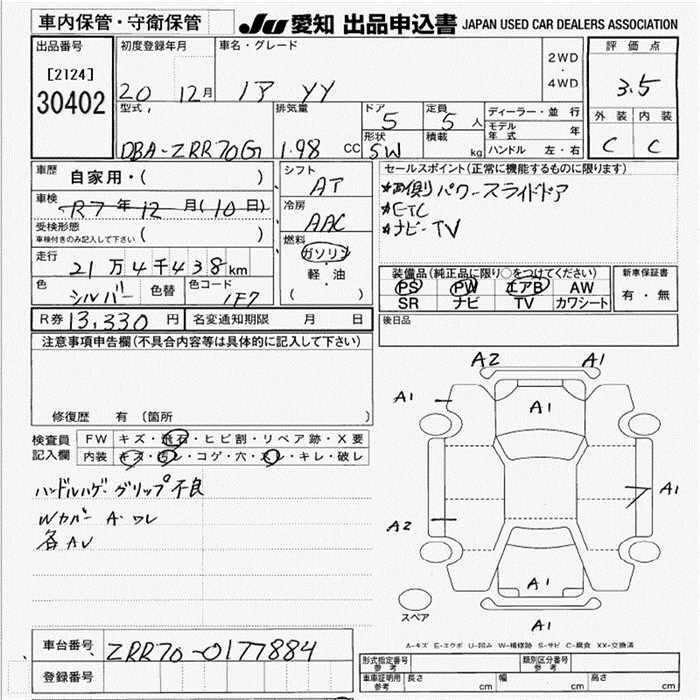 車内保管・守衛保管
JU 愛知 出品申込書 JAPAN USED CAR DEALERS ASSOCIATION
出品番号
[2124]
30402
初度登録年月
20 12月
車名・グレード
ノア YY
2WD
・
4WD
評価点
3.5
外装 内装
C C
型式
DBA-ZRR70G
排気量
1.98 CC
ドア
5
定員
5 人
形状
SW
積載
kg
ディーラー・並行
モデル年式 年
ハンドル 左・右
車歴
自家用・( )
車検
R7年12月(10日)
受検形態
車検付きのみ記入して下さい ( )
走行
21万4千438km
色
シルバー
色替
色コード
1F7
シフト
AT
冷房
AAC
燃料
ガソリン
・
軽・油
( )
セールスポイント(正常に機能するものに限ります)
*両側パワースライドドア
*ETC
*ナビ-TV
装備品(純正品に限り○をつけてください)
PS PW エアB AW
SR ナビ TV カワシート
新車保証書
有・無
R券 13,330 円
名変通知期限 月 日
後日品
注意事項申告欄(不具合内容等は具体的に記入して下さい)
修復歴 有 〔箇所 〕
検査員記入欄
FW キズ・飛石・ヒビ割・リペア跡・X要
内装 キズ・汚レ・コゲ・穴・スレ・キレ・破レ
ハンドルハゲ-グリップ不良
Wカバー A・ワレ
各AU
A2 A1
A1
A1
A1
A2
A1
A1
スペア
A-キズ E-エクボ U-凹み W-補修跡 S-サビ C-腐食 XX-交換済
車台番号
ZRR70-0177884
登録番号
形式指定番号 参考
類別区分番号 参考
車庫証明用 参考 長さ cm 幅 cm 高さ cm